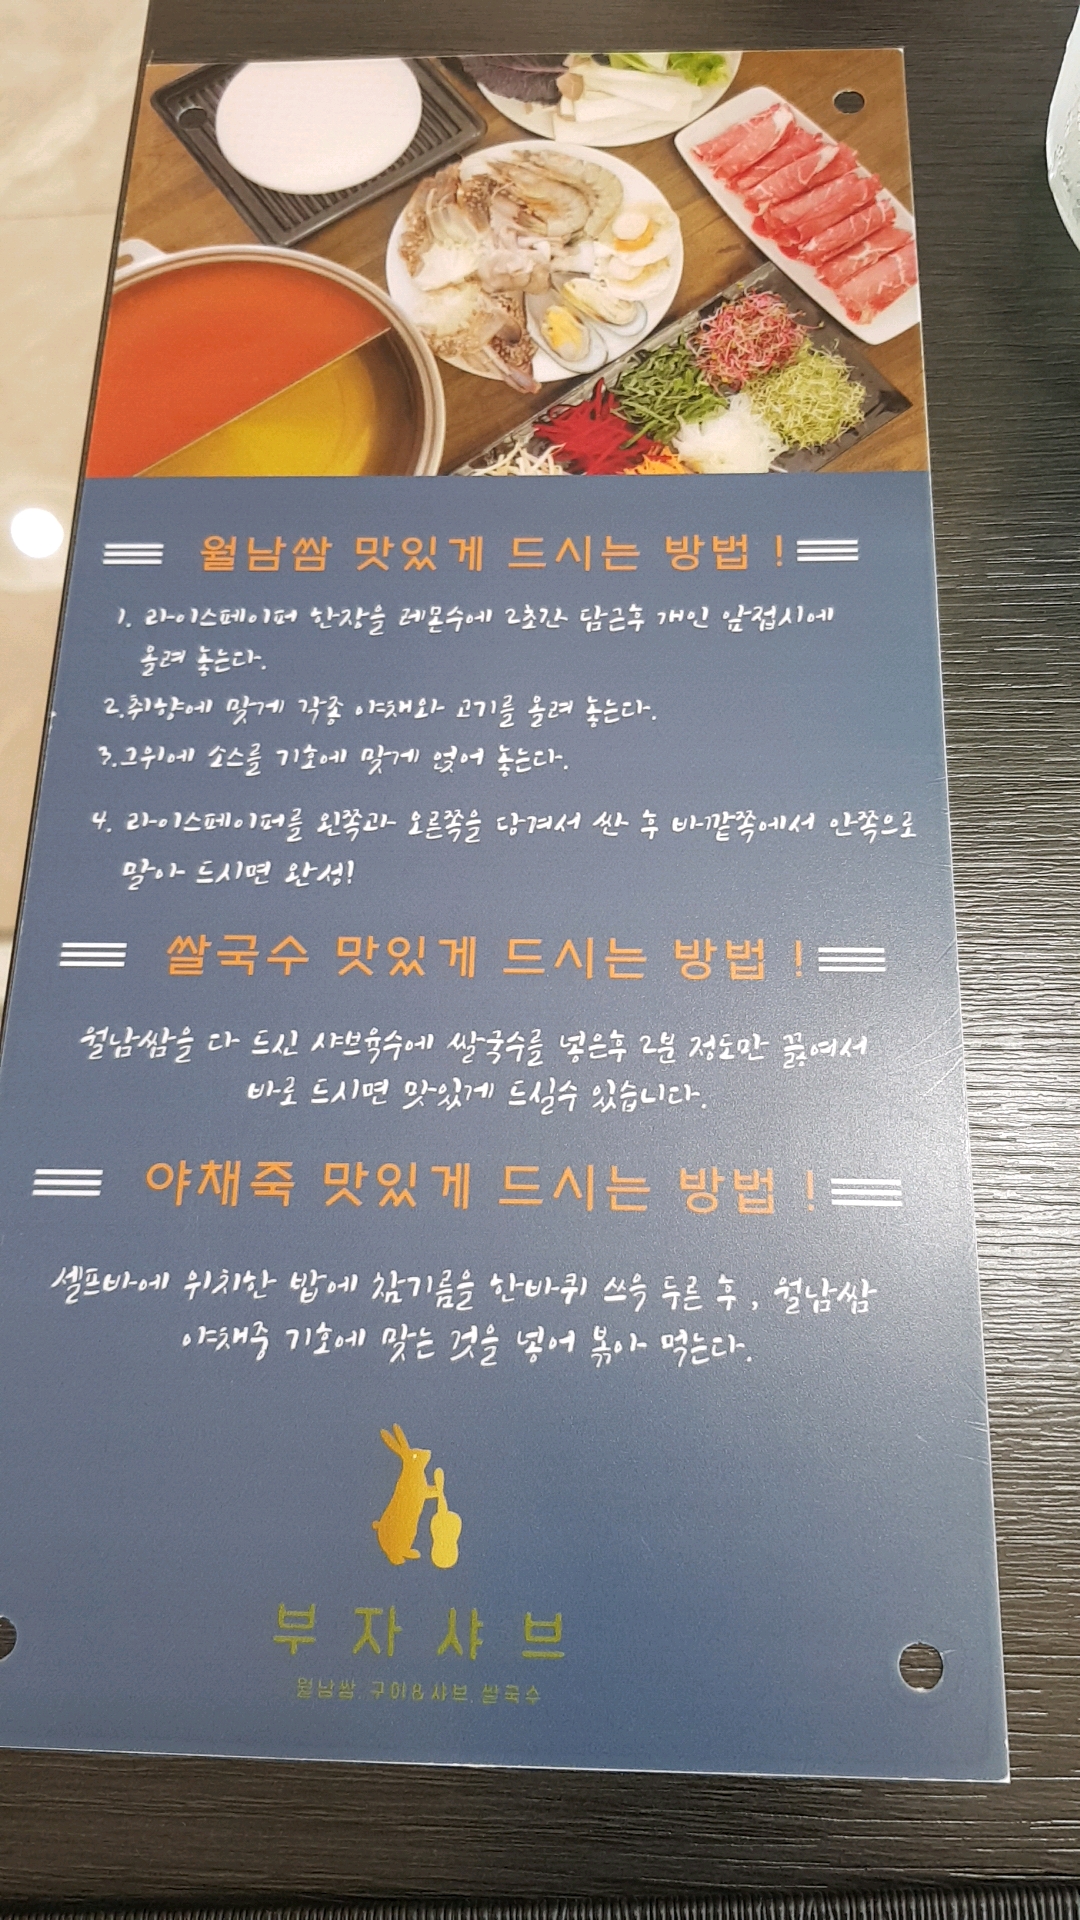 월남쌈 맛있게 드시는 방법 !
1. 라이스페이퍼 한장을 레몬수에 2초간 담근후 개인 앞접시에
올려 놓는다.
2.취향에 맞게 각종 야채와 고기를 올려 놓는다.
3.그위에 소스를 기호에 맞게 얹어 놓는다.
4. 라이스페이퍼를 왼쪽과 오른쪽을 당겨서 싼 후 바깥쪽에서 안쪽으로
말아 드시면 완성!
쌀국수 맛있게 드시는 방법 !
월남쌈을 다 드신 샤브육수에 쌀국수를 넣은후 2분 정도만 끓여서
바로 드시면 맛있게 드실수 있습니다.
야채죽 맛있게 드시는 방법 !
셀프바에 위치한 밥에 참기름을 한바퀴 쓰윽 두른 후 , 월남쌈
야채중 기호에 맞는 것을 넣어 볶아 먹는다.
부자샤브
월남쌈. 구이&샤브. 쌀국수